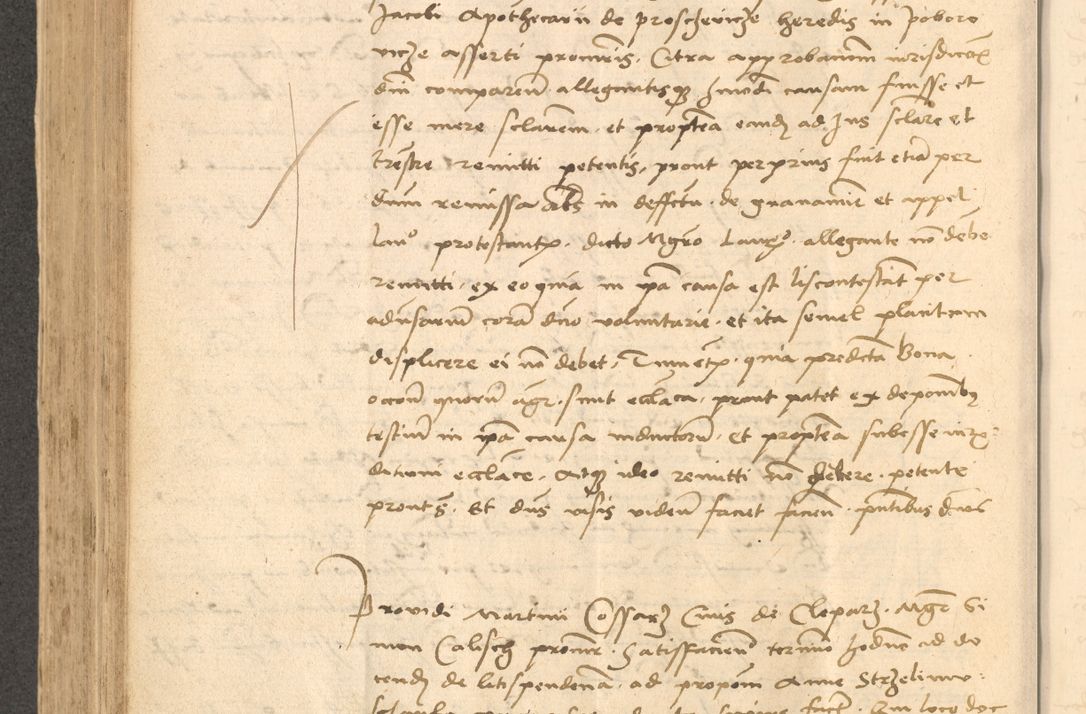 Jacobi Apothecarii de Proschevicze heredis in Poboro
vicze asserti procuris. Citra approbacionem iurisdiccōis
dni comparen allegantisque hmodi causam fuisse et
esse mere sclarem. et propterea eandem ad Jus sclare et
trestre remitti petentis, prout per prius fuit etiam per
dnum remissa Als in deffectu. de gravamine et appel
lan° protestantis. dicto Mgro Laur. allegante nō debe
remitti, ex eo quia in ipā causa est liscontestat per
adversarium corā dno voluntarie, et ita semel placitum
displicere ei nō debet, Tum etx. quia predicta Bona
occon quorum agr. sunt ecclaca, prout patet ex deponibus
testium in ipā causa inductorum. et propterea subesse iuris
dicioni ecclace, Atque ideo remitti nō debere. petente
pronts. Et dns visis videndis faciet facien. pntibus quibus
Providi Martini Cossarz Civis de Cleparz. Mgr Si
mon Calisch procur. Satisfaciend termino hodierno ad do
cend de litispendena, ad propon Anne Strzelinno
loco doc